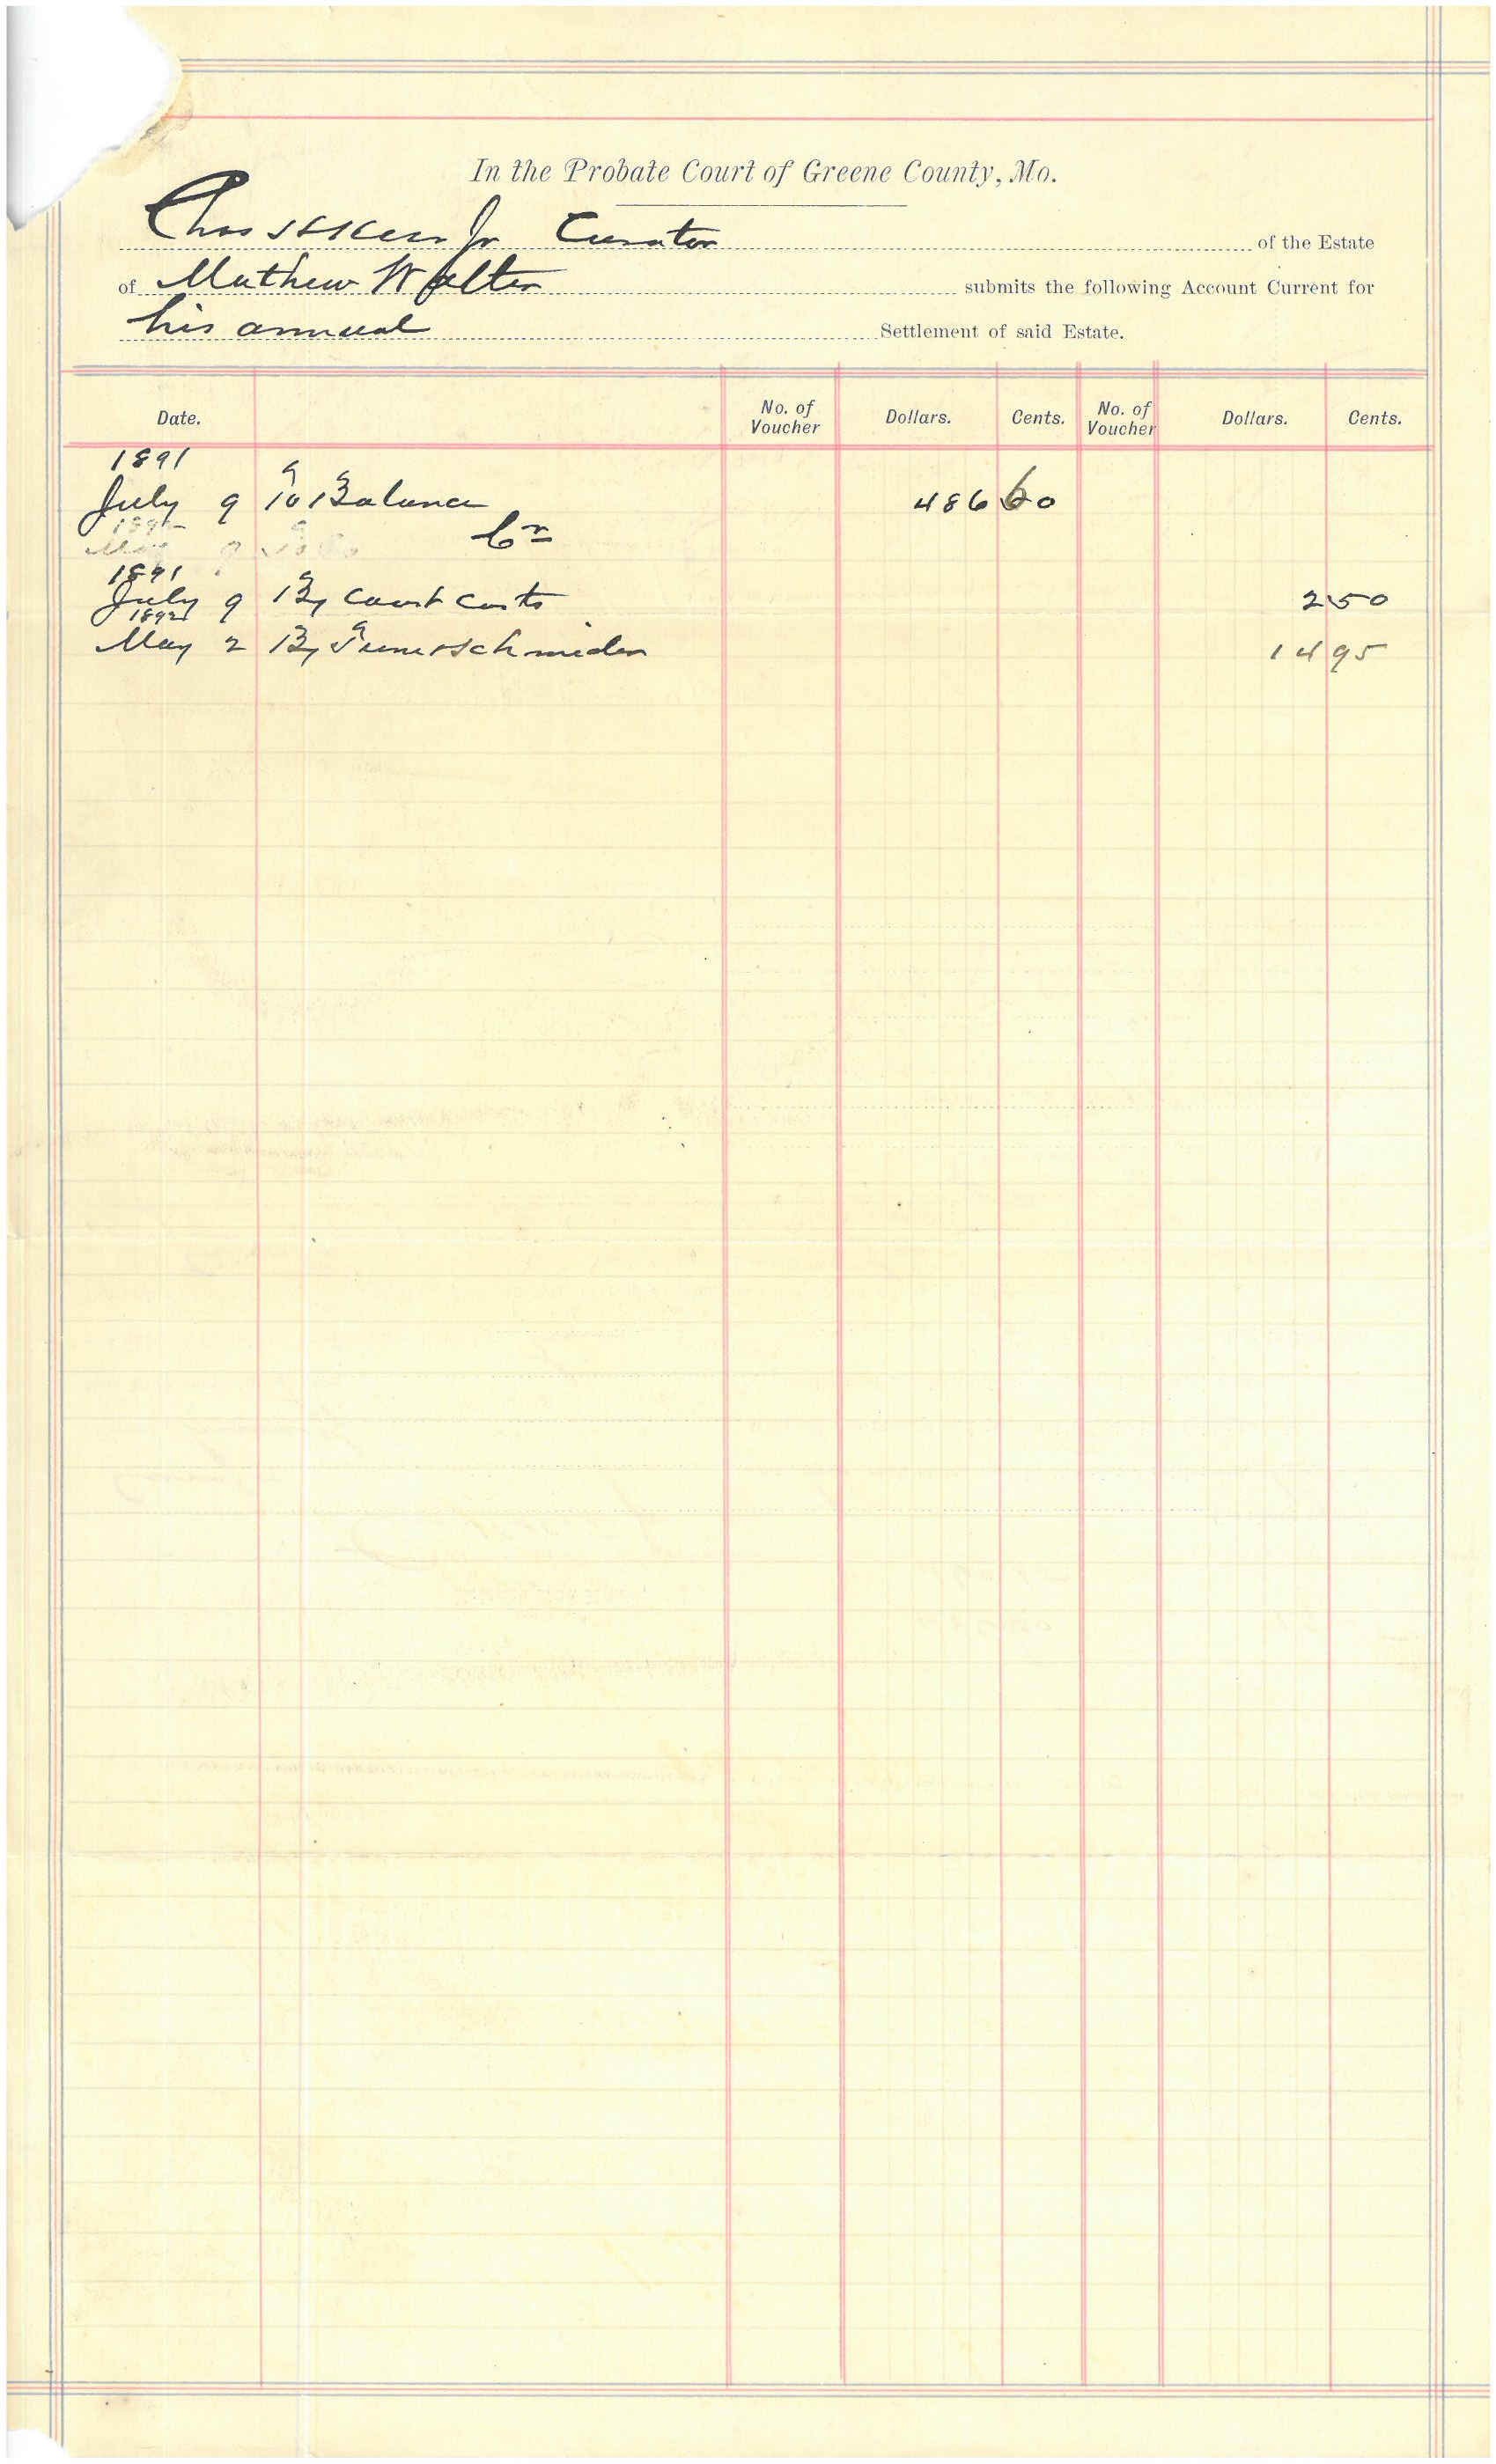 In the Probate Court of Greene County, Mo.
Chas Jr Curator of the Estate
of Mathew Walter submits the following Account Current for
his annual Settlement of said Estate.
Date. No. of Voucher Dollars. Cents. No. of Voucher Dollars. Cents.
1891
July 9 To Balance 486 60
Cr
1891
July 9 By Court Costs 2 50
1892
May 2 By 14 95